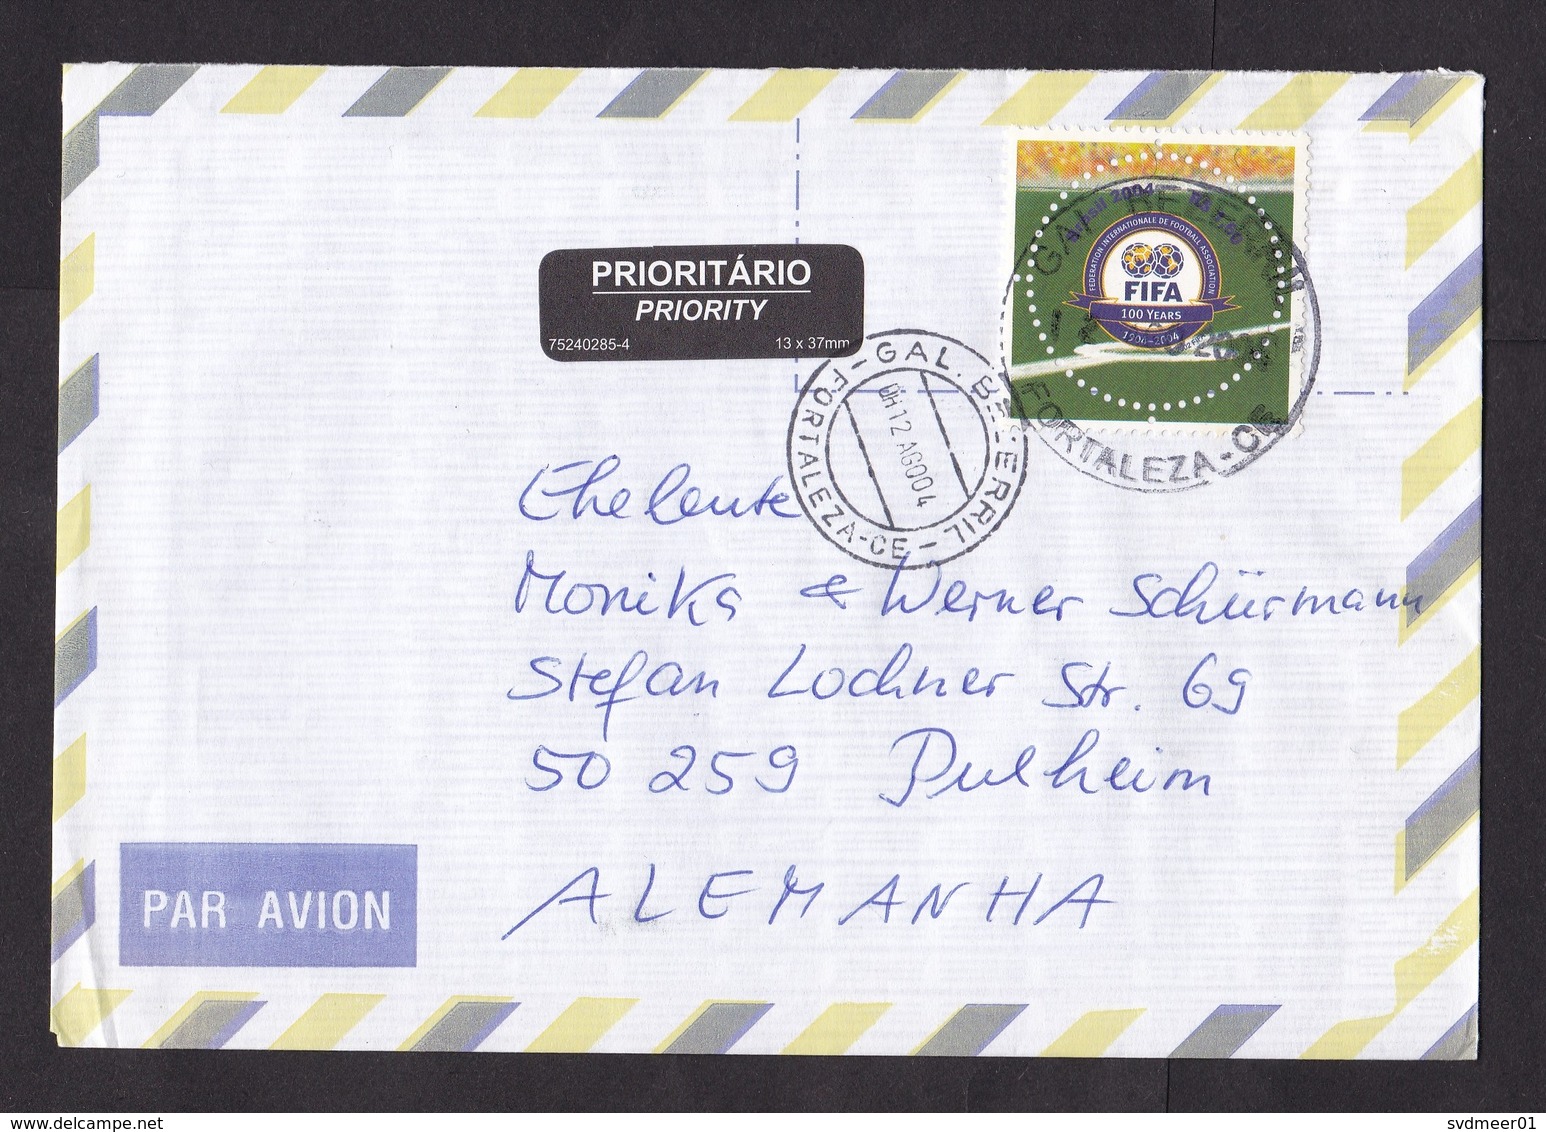 PRIORITÁRIO
PRIORITY
75240285-4 13 x 37mm
2004
FEDERATION INTERNATIONALE DE FOOTBALL ASSOCIATION
FIFA
100 YEARS
1904-2004
FORTALEZA-CE
GAL. BEZERRIL
FORTALEZA-CE
12 AGO04
Eheleute
Monika & Werner Schürmann
Stefan Lochner Str. 69
50 259 Pulheim
ALEMANHA
PAR AVION
www.delcampe.net
svdmeer01